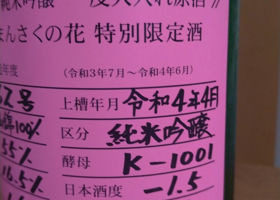 純米吟醸 一度火入れ原酒
まんさくの花 特別限定酒
年度 (令和3年7月〜令和4年6月)
号 上槽年月 令和4年4月
100% 区分 純米吟醸
55% 酵母 K-1001
16.5% 日本酒度 -1.5